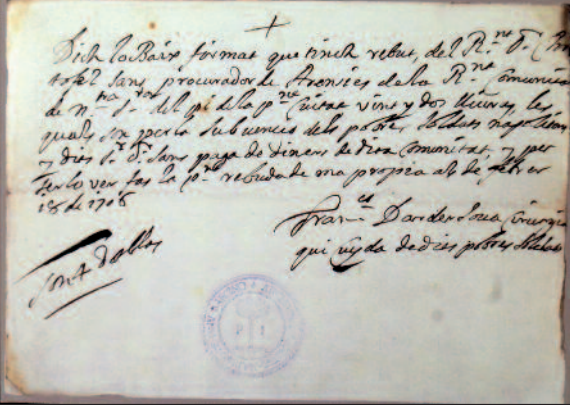 Dich lo Baix firmat que tinch rebut, del R.nt D.r
tofol Sans procurador de de la R.nt Comunitat
de N.tra S.ra del pi de la p.nt Ciutat vint y dos lliuras, les
quals son per la subvencio dels pobres soldats napolitans
y dies lo d.r Sans paga de diners de dita Comunitat, y per
ser lo ver fas la p.nt rebuda de ma propia als de febrer
18 de 1706
Fran.ces Darder Cirurgia
qui cuyda de dits pobres soldats
son 4 doblas